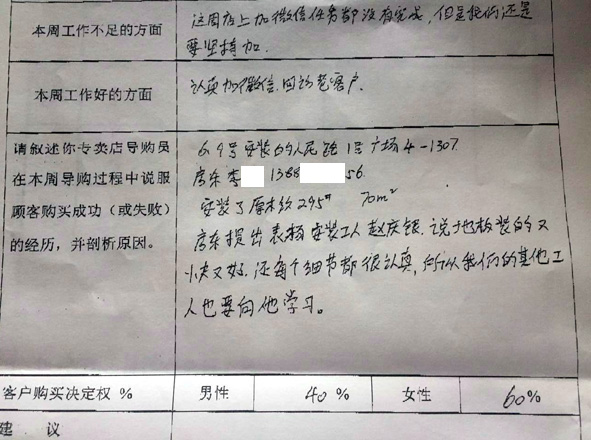 本周工作不足的方面
这周店上加微信任务都没有完成,但是我们还是
要坚持加.
本周工作好的方面
认真加微信.回访老客户.
请叙述你专卖店导购员
在本周导购过程中说服
顾客购买成功(或失败)
的经历,并剖析原因。
6.9号安装的人民路1号广场4-1307.
房东李 1388 56
安装了原木纹295 70m²
房东提出表扬安装工人赵庆银.说地板装的又
快又好.还每个细节都很认真,所以我们的其他工
人也要向他学习。
客户购买决定权% 男性 40% 女性 60%
建 议